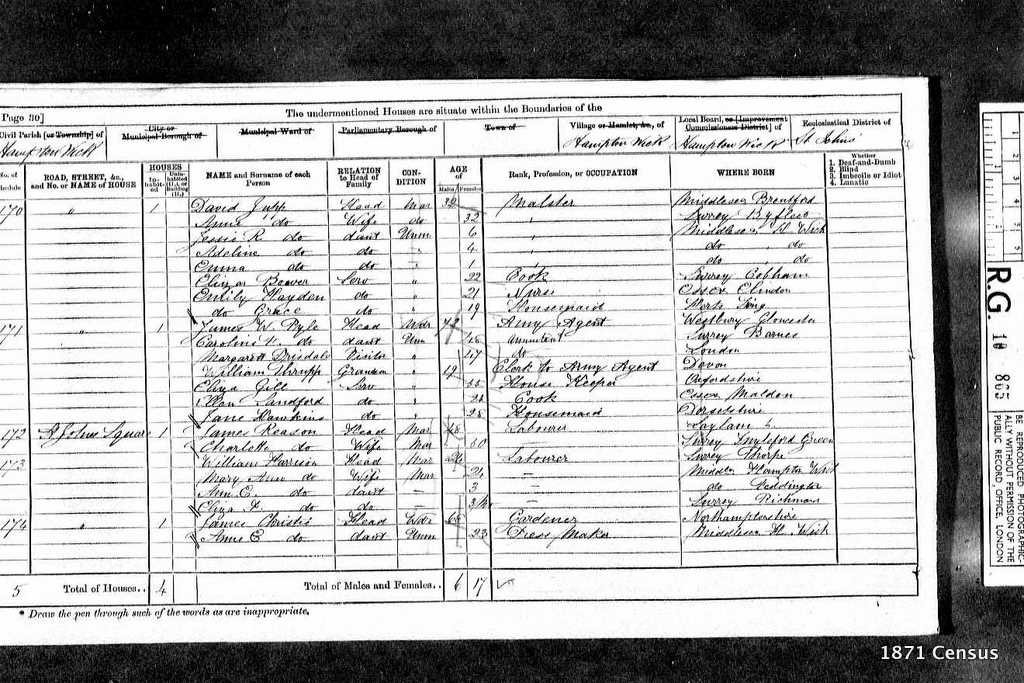 Page 30]
The undermentioned Houses are situate within the Boundaries of the
Civil Parish [or Township] of City or Municipal Borough of Municipal Ward of Parliamentary Borough of Town of Village or Hamlet, &c., of Local Board, or [Improvement Commissioners District] of Ecclesiastical District of
Hampton Wick Hampton Wick Hampton Wick St. John's
No. of Schedule ROAD, STREET, &c., and No. or NAME of HOUSE HOUSES Inhabited Uninhabited (U.), or Building (B.) NAME and Surname of each Person RELATION to Head of Family CONDITION AGE Males Females Rank, Profession, or OCCUPATION WHERE BORN Whether 1. Deaf-and-Dumb 2. Blind 3. Imbecile or Idiot 4. Lunatic
170 " 1 David Jupp Head Mar 32 Malster Middlesex Brentford
Anne do Wife do 32 Surrey Byfleet
Jessie R. do daut Unm 6 Middlesex H. Wick
Adeline do do 4 do do
Emma do do 1 do do
Beaver Serv " 22 Cook Surrey Cobham
Emily Haydon do " 21 Nurse Essex
do Grace do " 19 Housemaid
171 " 1 James W. Pyle Head 72 Army Agent Westbury Gloucester
Caroline W. do daut Unm Annuitant Surrey Barnes
Margarett Visitor " do London
William Grandson " 19 Clerk to Army Agent Devon
Eliza Gill Serv " House Keeper Oxfordshire
Ellen Sandford do " Cook Essex Maldon
Jane Hawkins do " 28 Housemaid Dorsetshire
172 St Johns Square 1 James Reason Head Mar 48 Labourer
Charlotte do Wife Mar 50 Surrey Green
173 William Harrison Head Mar Labourer Surrey Thorpe
Mary Ann do Wife Mar Middlx Hampton Wick
Ann E. do daut — 3 do Teddington
Eliza do do Surrey Richmond
174 " 1 James Christie Head Gardener Northamptonshire
Anne E do daut Unm 23 Dress Maker Middlesex H. Wick
5 Total of Houses.. 4 Total of Males and Females.. 6 17
* Draw the pen through such of the words as are inappropriate.
R.G. 10 865
BE REPRODUCED PHOTOGRAPHIC-
ALLY WITHOUT PERMISSION OF THE
PUBLIC RECORD OFFICE, LONDON
1871 Census